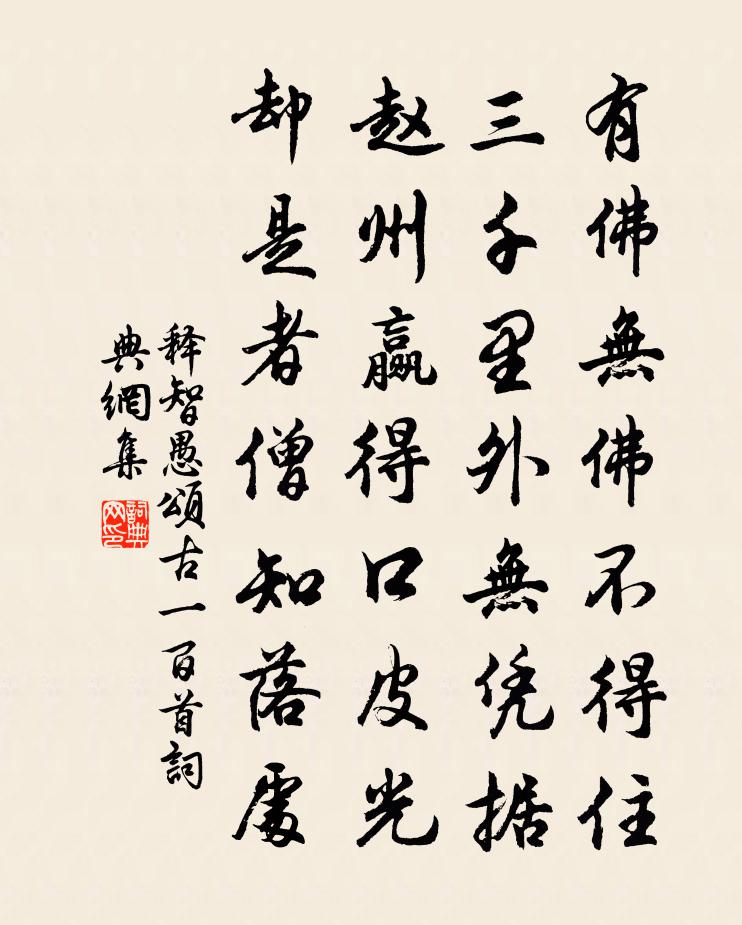 有佛無佛不得住
三千里外無凭据
赵州贏得口皮光
却是者僧知落處
释智愚頌古一百首詞
典網集
詞典网印